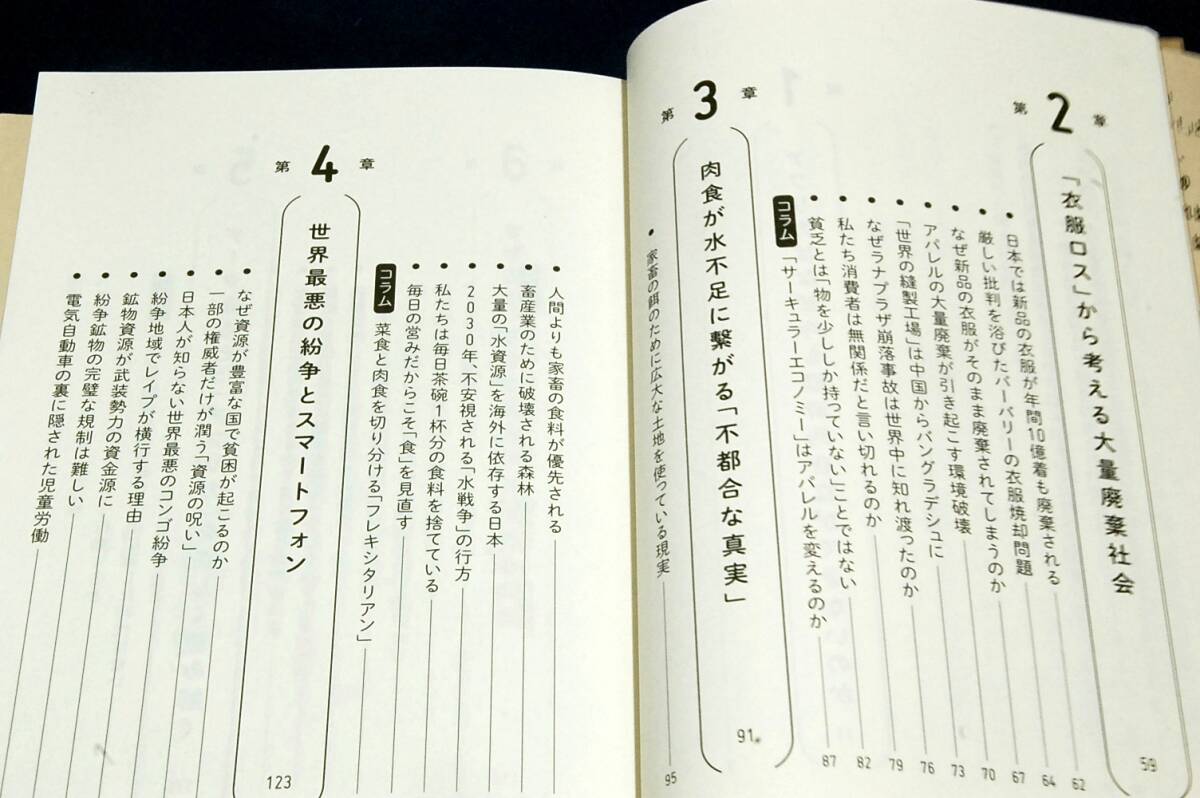 第2章
「衣服ロス」から考える大量廃棄社会 59
日本では新品の衣服が年間10億着も廃棄される 62
厳しい批判を浴びたバーバリーの衣服焼却問題 64
なぜ新品の衣服がそのまま廃棄されてしまうのか 67
アパレルの大量廃棄が引き起こす環境破壊 70
「世界の縫製工場」は中国からバングラデシュに 73
なぜラナプラザ崩落事故は世界中に知れ渡ったのか 76
私たち消費者は無関係だと言い切れるのか 79
貧乏とは「物を少ししか持っていない」ことではない 82
コラム 「サーキュラーエコノミー」はアパレルを変えるのか 87
第3章
肉食が水不足に繋がる「不都合な真実」 91
家畜の餌のために広大な土地を使っている現実 95
人間よりも家畜の食料が優先される
畜産業のために破壊される森林
大量の「水資源」を海外に依存する日本
2030年、不安視される「水戦争」の行方
私たちは毎日茶碗1杯分の食料を捨てている
毎日の営みだからこそ「食」を見直す
コラム 菜食と肉食を切り分ける「フレキシタリアン」
第4章
世界最悪の紛争とスマートフォン 123
なぜ資源が豊富な国で貧困が起こるのか
一部の権威者だけが潤う「資源の呪い」
日本人が知らない世界最悪のコンゴ紛争
紛争地域でレイプが横行する理由
鉱物資源が武装勢力の資金源に
紛争鉱物の完璧な規制は難しい
電気自動車の裏に隠された児童労働